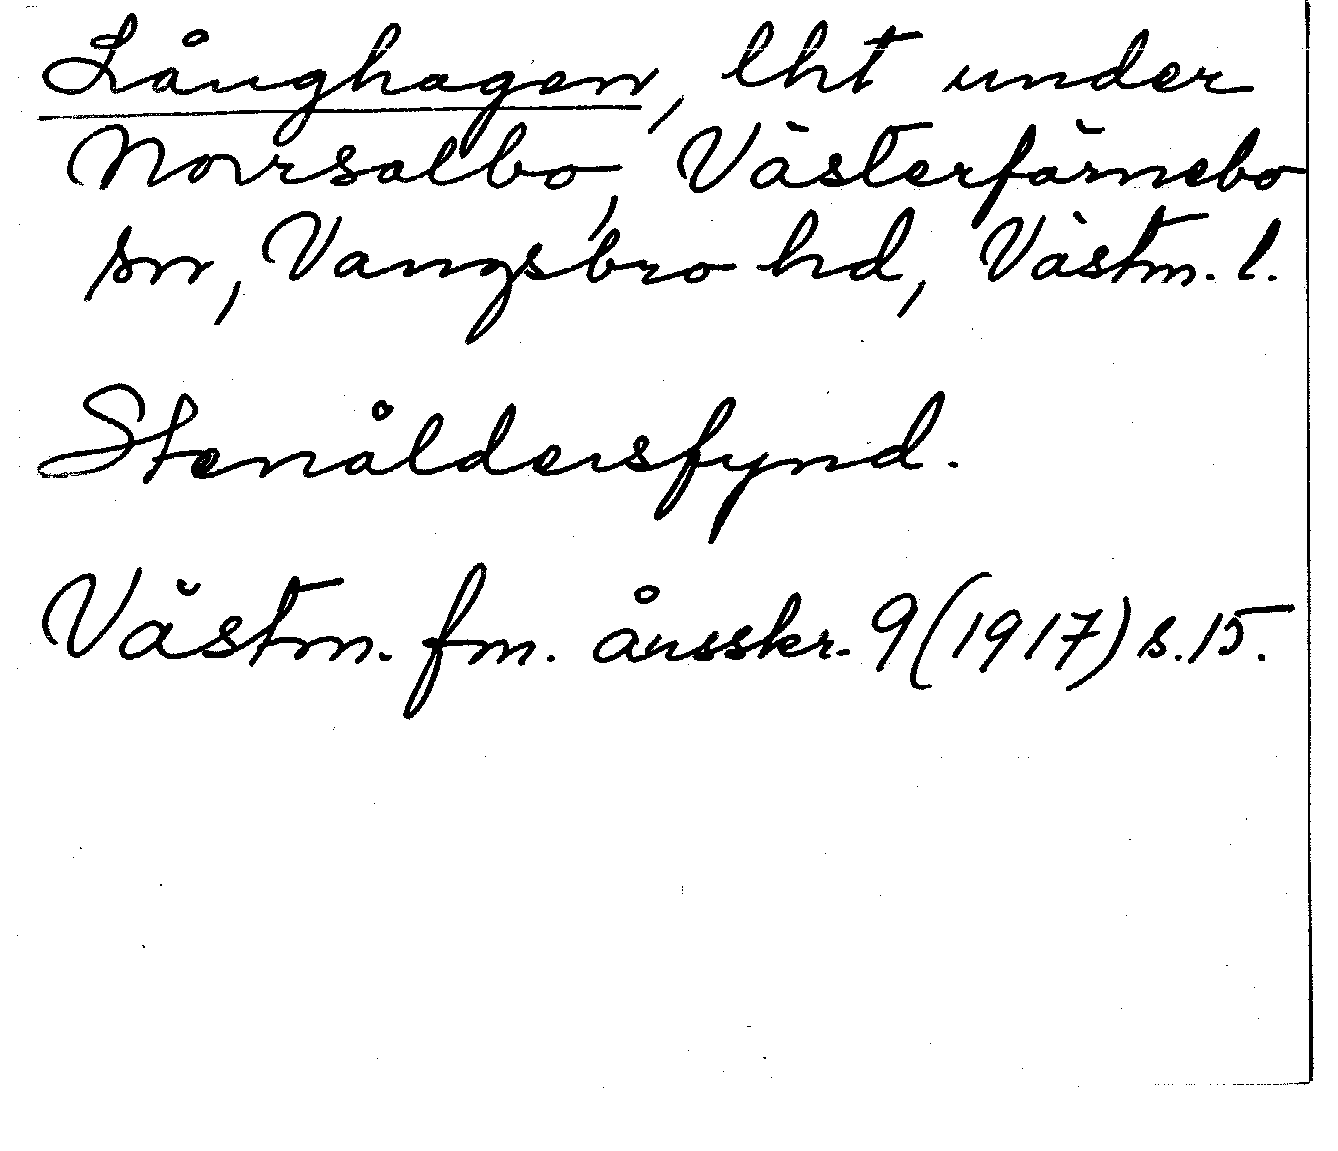 Långhagen, lht under
Norrsalbo, Västerfärnebo
sn, Vangsbro hd, Västm. l.
Stenåldersfynd.
Västm. fm. årsskr. 9 (1917) s. 15.